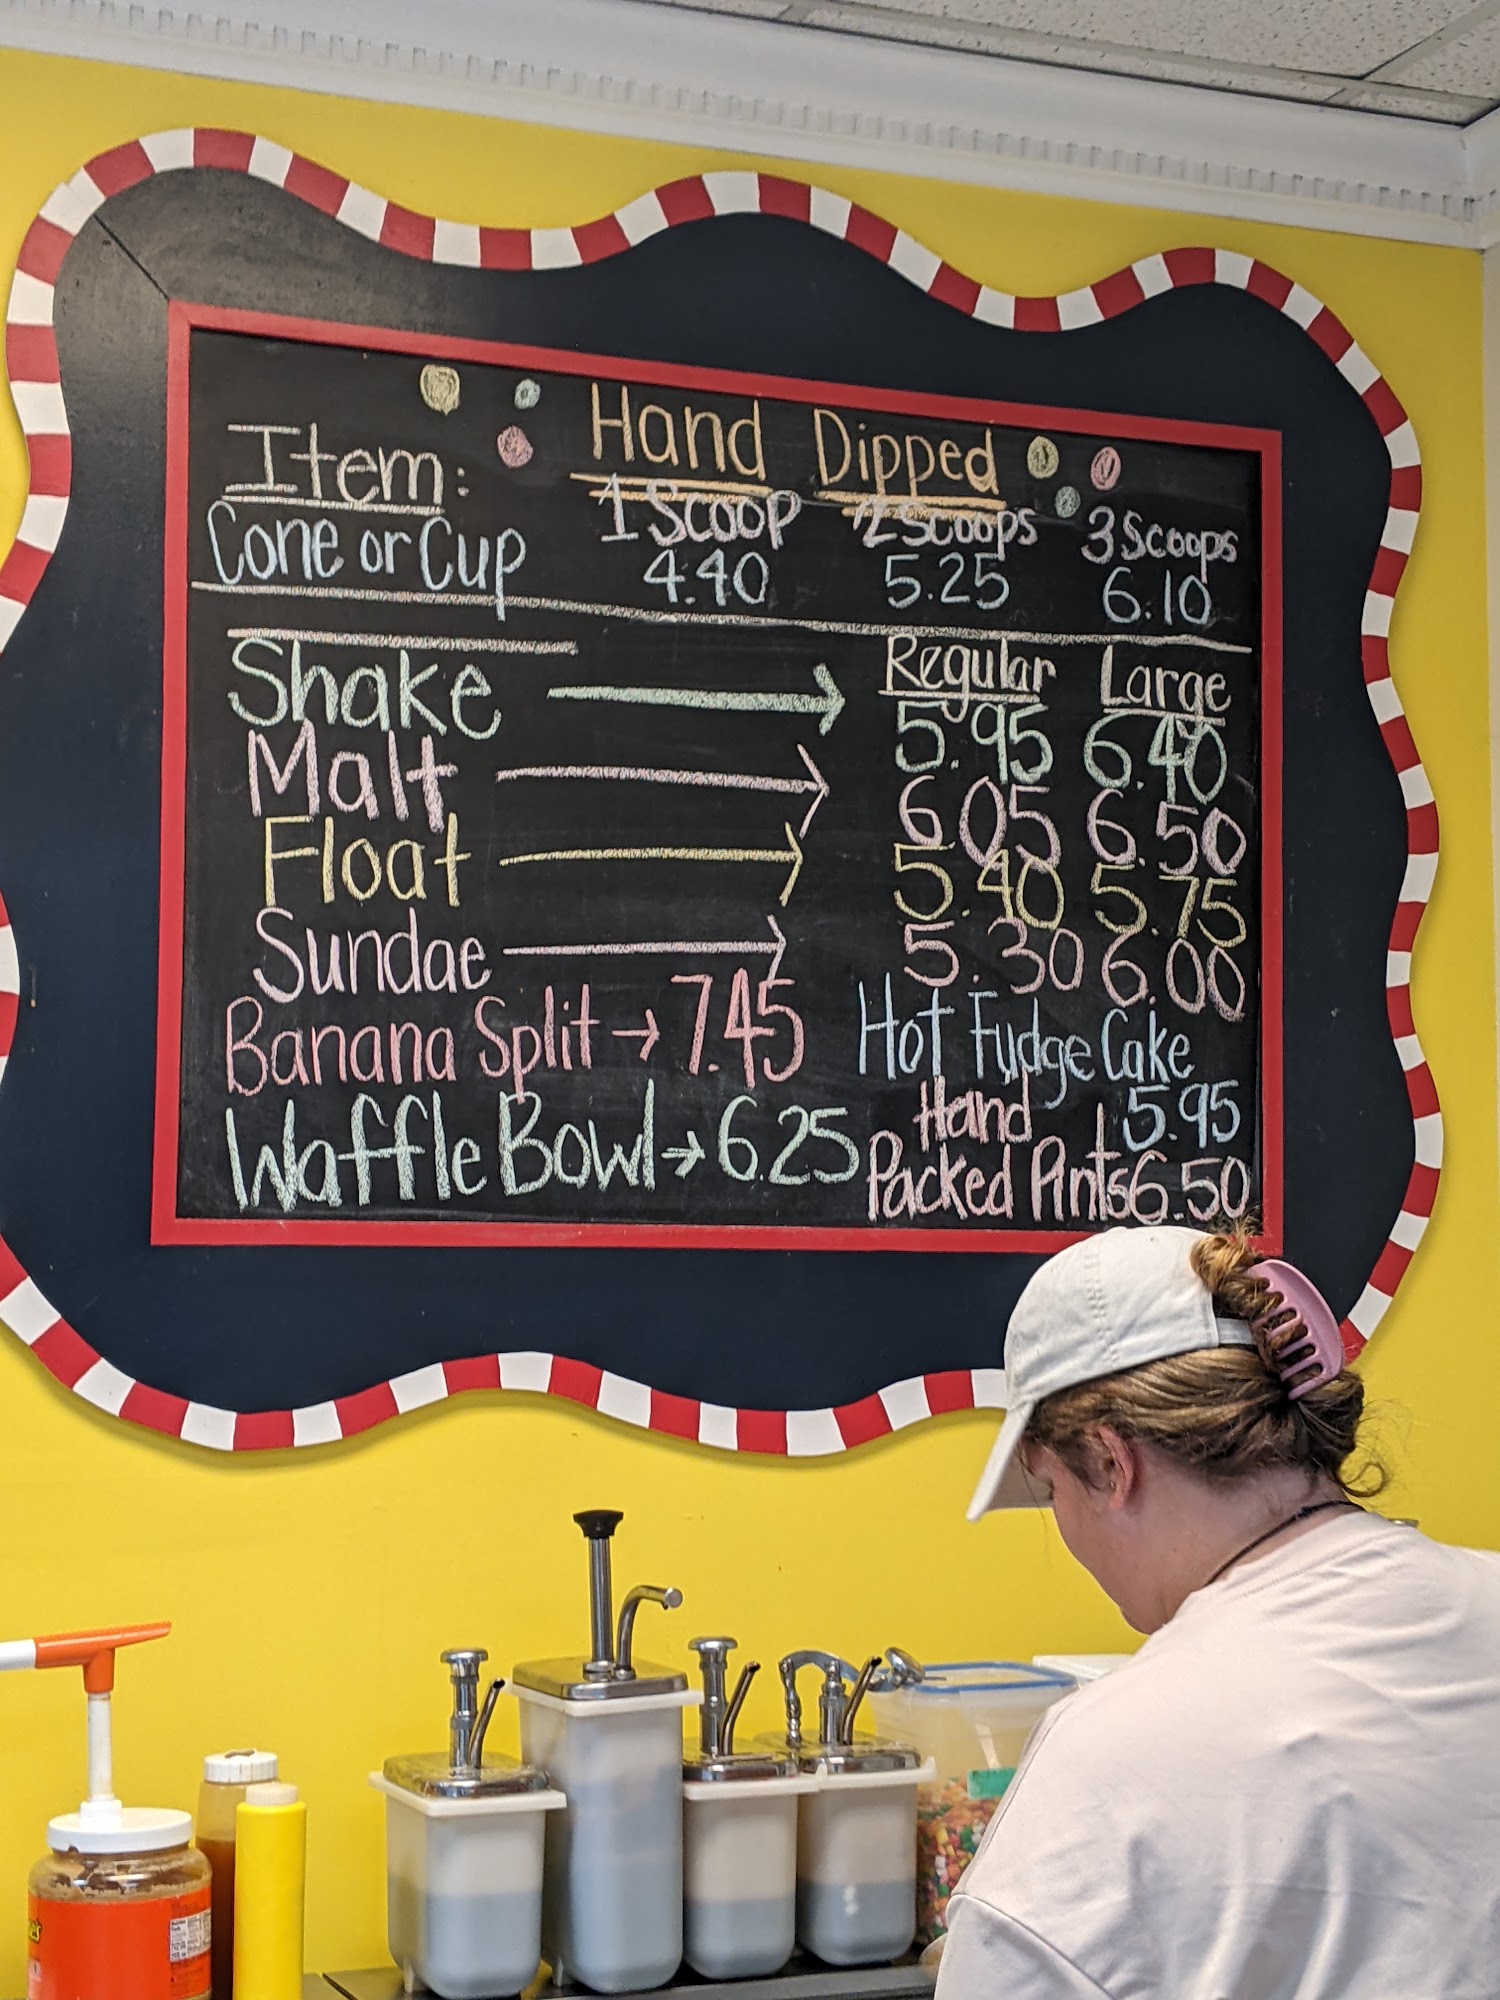 Hand Dipped
Item: 1 Scoop 2 Scoops 3 Scoops
Cone or Cup 4.40 5.25 6.10
Regular Large
Shake → 5.95 6.40
Malt → 6.05 6.50
Float → 5.40 5.75
Sundae → 5.30 6.00
Banana Split → 7.45 Hot Fudge Cake
5.95
Waffle Bowl → 6.25 Hand
Packed Pints 6.50